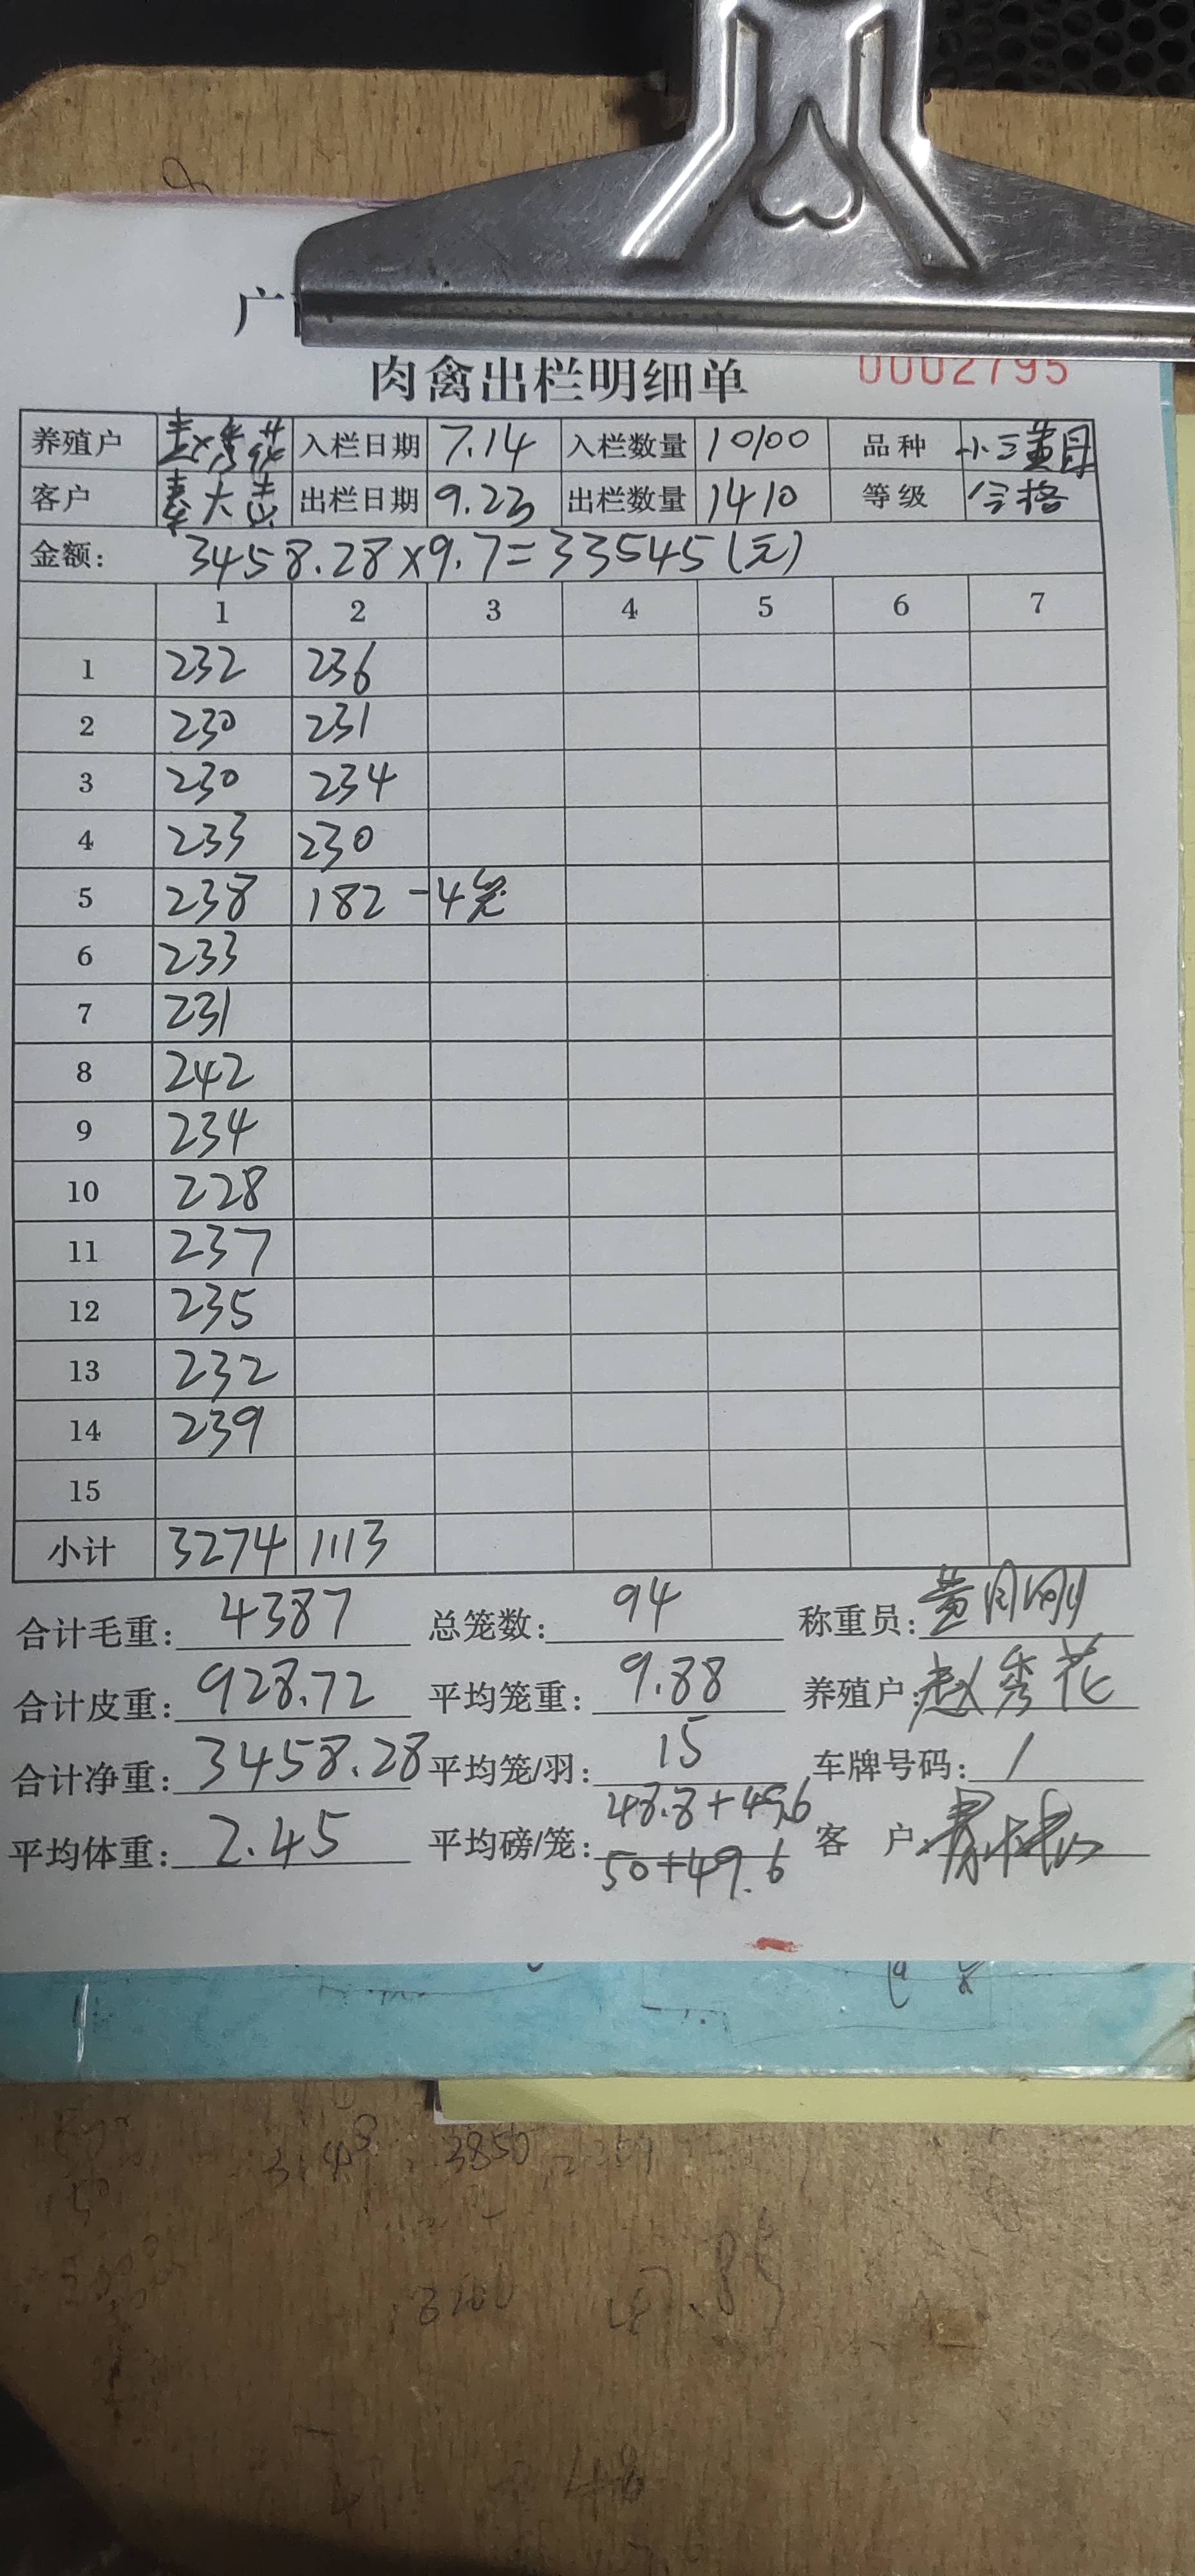 广
肉禽出栏明细单 0002795
养殖户 赵秀花 入栏日期 7.14 入栏数量 10100 品种 小三黄母
客户 秦大 出栏日期 9.23 出栏数量 1410 等级 合格
金额: 3458.28×9.7=33545(元)
1 2 3 4 5 6 7
1 232 236
2 230 231
3 230 234
4 233 230
5 238 182 -4笼
6 233
7 231
8 242
9 234
10 228
11 237
12 235
13 232
14 239
15
小计 3274 1113
合计毛重: 4387 总笼数: 94 称重员: 黄月刚
合计皮重: 928.72 平均笼重: 9.88 养殖户: 赵秀花
合计净重: 3458.28 平均笼/羽: 15 车牌号码: /
平均体重: 2.45 平均磅/笼: 48.8+49.6 客 户:
50+49.6
3850
3100
48